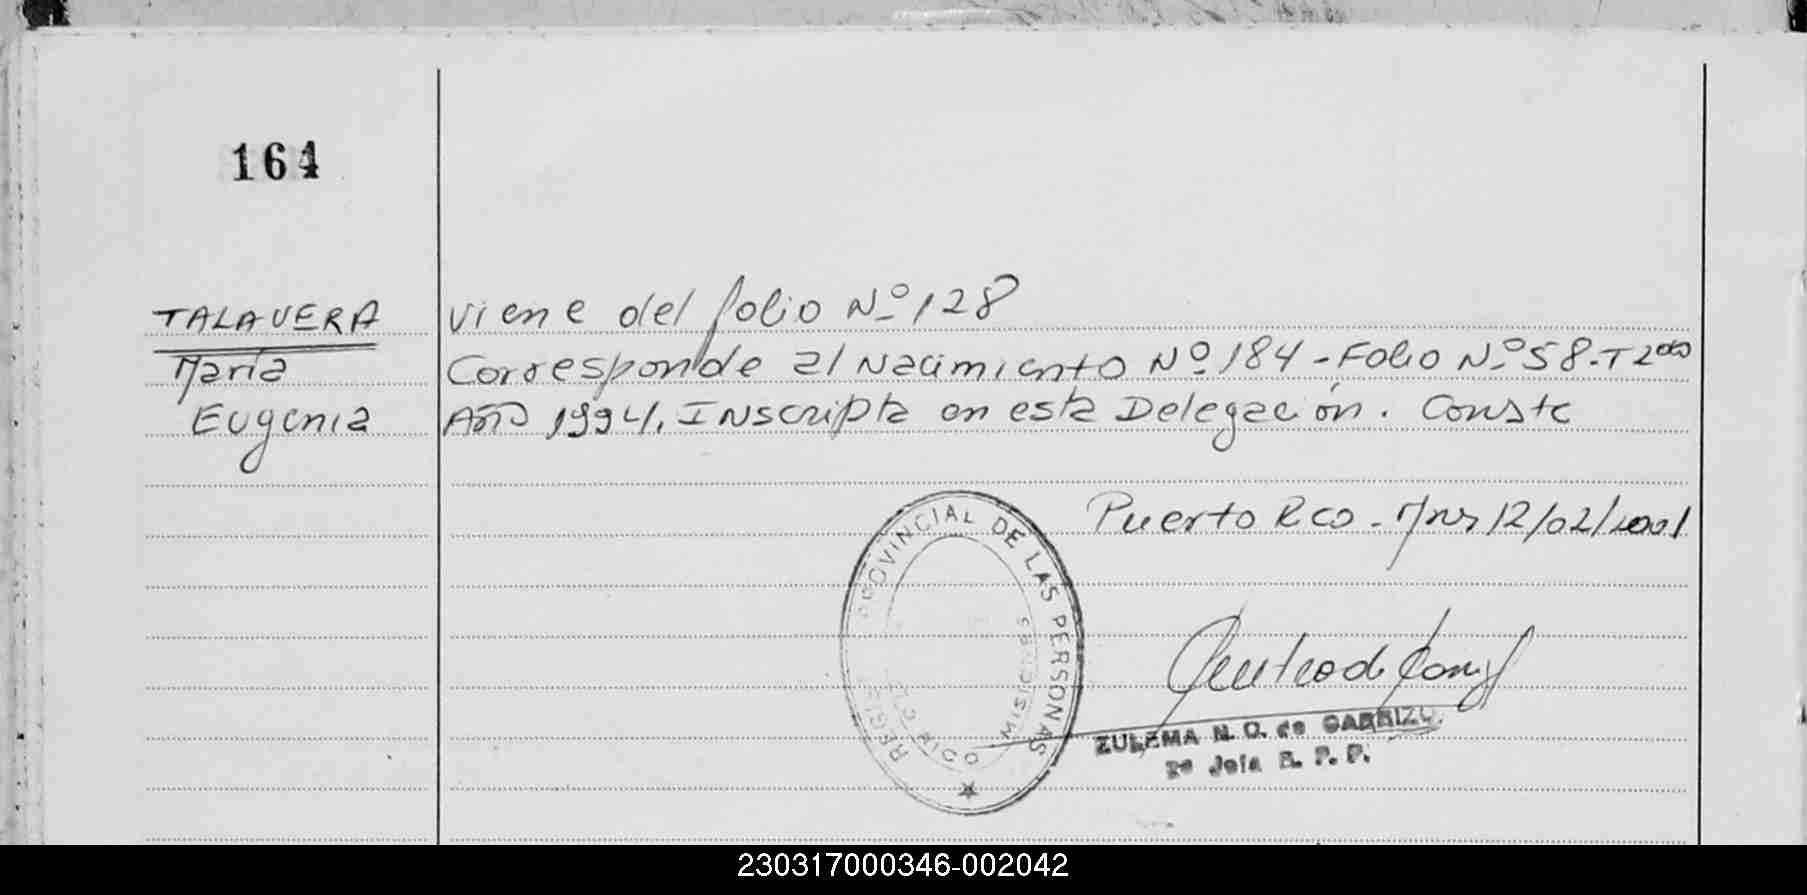 164
TALAVERA
María
Eugenia
viene del folio Nº 128
Corresponde al Nacimiento Nº 184 - Folio Nº 58 - T 2do
Año 1994. Inscripta en esta Delegación. Conste
Puerto Rco - Mns 12/02/2001
REGISTRO PROVINCIAL DE LAS PERSONAS
PTO RICO MISIONES
ZULEMA N. Q. de CARRIZO
2º Jefa R. P. P.
230317000346-002042